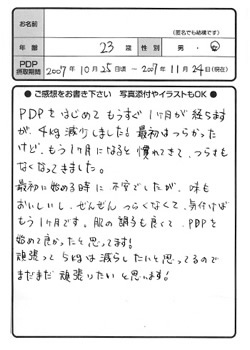 お名前
（匿名でも結構です）
年齢 23 歳 性別 男・女
PDP摂取期間 2007年10月25日頃 ～ 2007年11月24日(現在)
● ご感想をお書き下さい 写真添付やイラストもOK ●
PDPをはじめて もうすぐ 1ヶ月が 経ちます
が、4kg減少しました! 最初はつらかった
けど、もう1ヶ月になると 慣れてきて、つらさも
なくなってきました。
最初に始める時に 不安でしたが、味も
おいしいし、ぜんぜん つらくなくて、気付けば
もう1ヶ月です。腸の調子も良くて、PDPを
始めて良かったと思ってます!
頑張って 5kgは減らしたいと思ってるので
まだまだ 頑張りたいと思います!